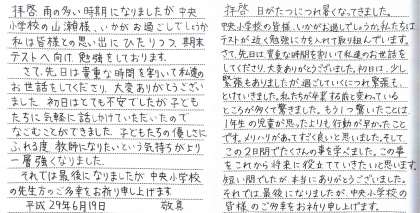 拝啓 雨の多い時期になりましたが中央
小学校の山瀬様、いかがお過ごしでしょうか
私は皆様との思い出にひたりつつ、期末
テストへ向け、勉強をしております。
さて、先日は貴重な時間を割いて私達の
お世話をしてくださり、大変ありがとうござい
ました。初日はとても不安でしたが子ども
たちに気軽に話しかけていただいたので
なごむことができました。子どもたちの優しさに
ふれる度、教師になりたいという気持ちがより
一層強くなりました。
それでは最後になりましたが、中央小学校
の先生方のご多幸をお祈り申し上げます。
平成29年6月19日 敬具
拝啓 日がたつにつれ暑くなってきました。
中央小学校の皆様、いかがお過ごしでしょうか。私たちは
テストが近く勉強に力を入れて取り組んでいます。
さて、先日は貴重な時間を割いて私達のお世話を
してくださり、大変ありがとうございました。初日は、少し
緊張もありましたが、過ごしていくにつれ緊張も、
とけていきました。私たちが卒業する前と変わっている
ところが多くて驚きました。もう1つ驚いたことは、
1年生の児童が思ったよりも行動が早かったこと
です。メリハリがあってすごく良いと思いました。そして、
この2日間でたくさんの事を学べました。この事
をこれから将来に役立てていきたいと思います。
短い間でしたが、本当にありがとうございました。
それでは最後になりましたが、中央小学校の
皆様のご多幸をお祈り申し上げます。